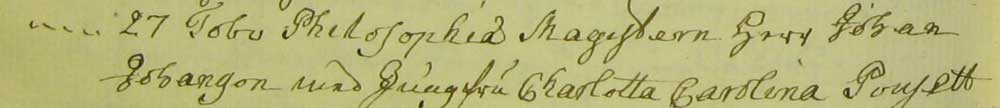 27 Tobr Philosophiæ Magistern Herr Johan
Johangon med Jungfrü Charlotta Carolina Pousett